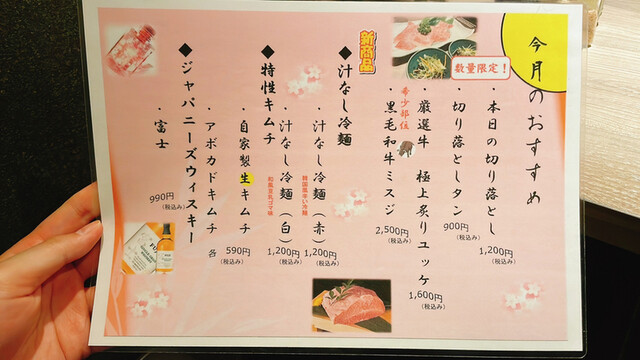 今月のおすすめ
数量限定！
・本日の切り落とし
1,200円
(税込み)
・切り落としタン
900円
(税込み)
・厳選牛 極上炙りユッケ
1,600円
(税込み)
希少部位
・黒毛和牛ミスジ
2,500円
(税込み)
新商品
◆汁なし冷麺
・汁なし冷麺（赤）
韓国風辛い冷麺
1,200円
(税込み)
・汁なし冷麺（白）
和風豆乳ゴマ味
1,200円
(税込み)
◆特性キムチ
・自家製生キムチ
590円
(税込み)
・アボカドキムチ 各
◆ジャパニーズウィスキー
・富士
990円
(税込み)